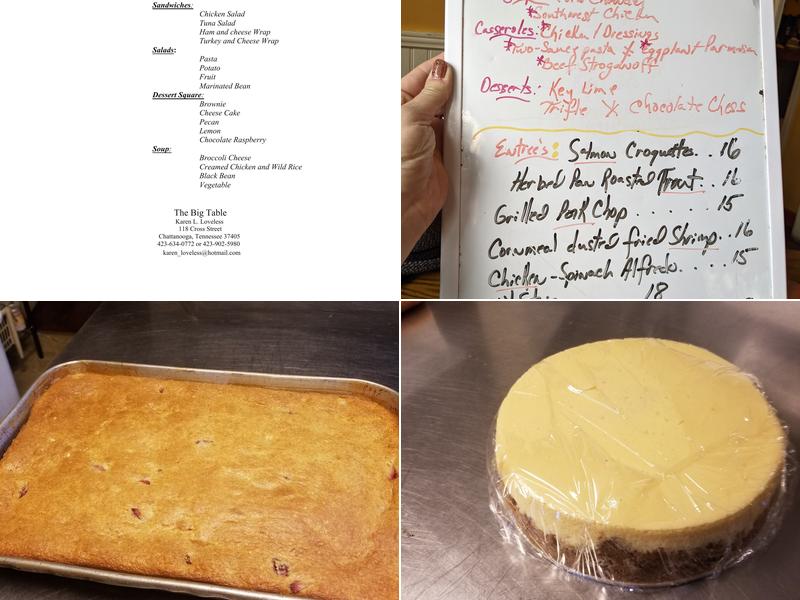 Sandwiches:
Chicken Salad
Tuna Salad
Ham and cheese Wrap
Turkey and Cheese Wrap
Salads:
Pasta
Potato
Fruit
Marinated Bean
Dessert Square:
Brownie
Cheese Cake
Pecan
Lemon
Chocolate Raspberry
Soup:
Broccoli Cheese
Creamed Chicken and Wild Rice
Black Bean
Vegetable
The Big Table
Karen L. Loveless
118 Cross Street
Chattanooga, Tennessee 37405
423-634-0772 or 423-902-5980
karen_loveless@hotmail.com
*Southwest Chicken
Casseroles: *Chicken/Dressings
*Two-Sauce pasta X *Eggplant Parmesian
*Beef Stroganoff
Desserts: Key Lime
Trifle X Chocolate Chess
Entree's: Salmon Croquettes.. 16
Herbed Pan Roasted Trout.. 16
Grilled Pork Chop ..... 15
Cornmeal dusted fried Shrimp.. 16
Chicken-Spinach Alfredo.... 15
18